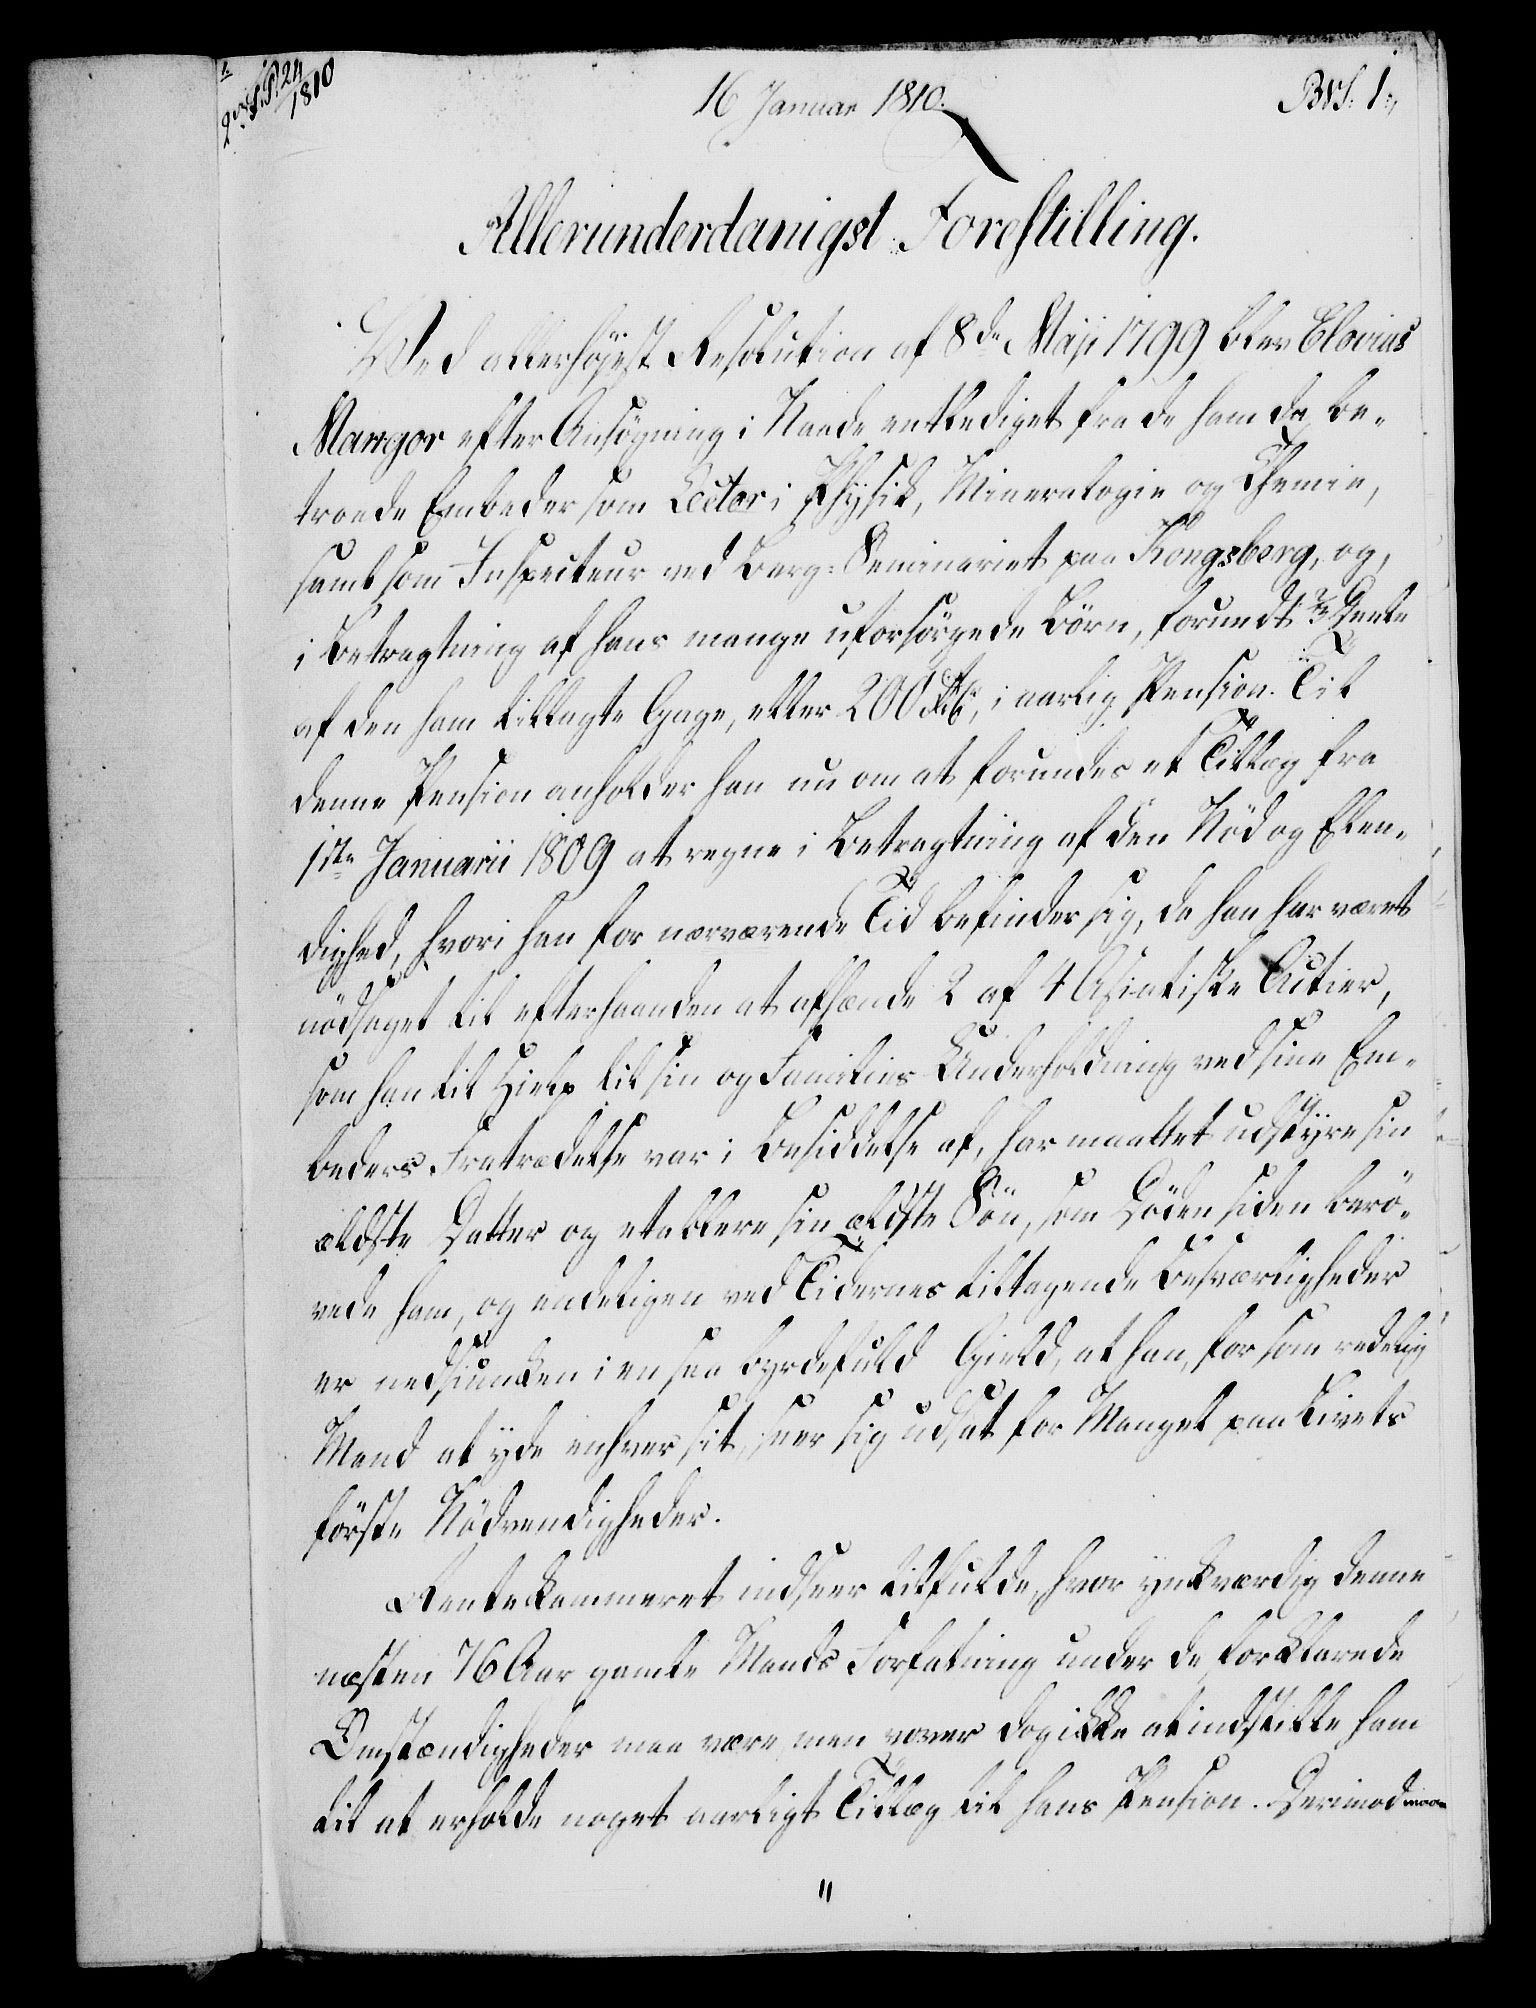 16 Januar 1810.
BVS: 1.
1810
Allerunderdanigst Forestilling.
Ved allerhøjest Resolution af 8de Maji 1799 blev Elovius
Mangor efter Ansøgning i Naade entlediget fra de ham da be-
troede Embeder som Lector i Physik, Mineralogie og Chemie,
samt som Inspecteur ved Berg-Seminariet paa Kongsberg, og,
i Betragtning af hans mange uforsørgede Börn, forundt
af den ham tillagte Gage, eller 200 Rd, i aarlig Pension. Til
denne Pension anholder han nu om at forundes et Tillæg fra
1ste Januarii 1809 at regne i Betragtning af den Nød og Elen-
dighed, hvori han for nærværende Tid befinder sig, da han har været
nödsaget til efterhaanden at afhænde 2 af 4 Asiatiske Actier,
som han til Hielp til sin og Families Underholdning ved sine Em-
beders Fratrædelse var i Besiddelse af, har maattet udstÿre sin
ældste Datter og etablere sin ældste Sön, som Döden siden berö-
vede ham, og endeligen ved Tidernes tiltagende Besværligheder
er nedsiunken i en saa byrdefuld Gield, at han, for som redelig
Mand at yde enhver sit, seer sig udsat for Mangel paa Livets
förste Nödvendigheder.
Rentekammeret indseer tilfulde, hvor ynkværdig denne
næsten 76 Aar gamle Mands Forfatning under de forklarede
Omstændigheder maa være, men vover dog ikke at indstille ham
til at erholde noget aarligt Tillæg til hans Pension. Derimod maa
"